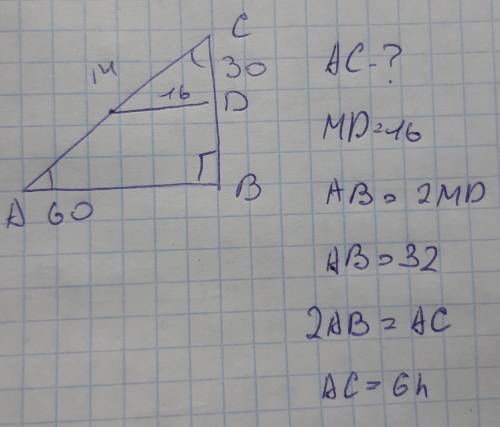 C
30
M
16
D
A 60
B
AC-?
MD=16
AB=2MD
AB=32
2AB=AC
AC=64